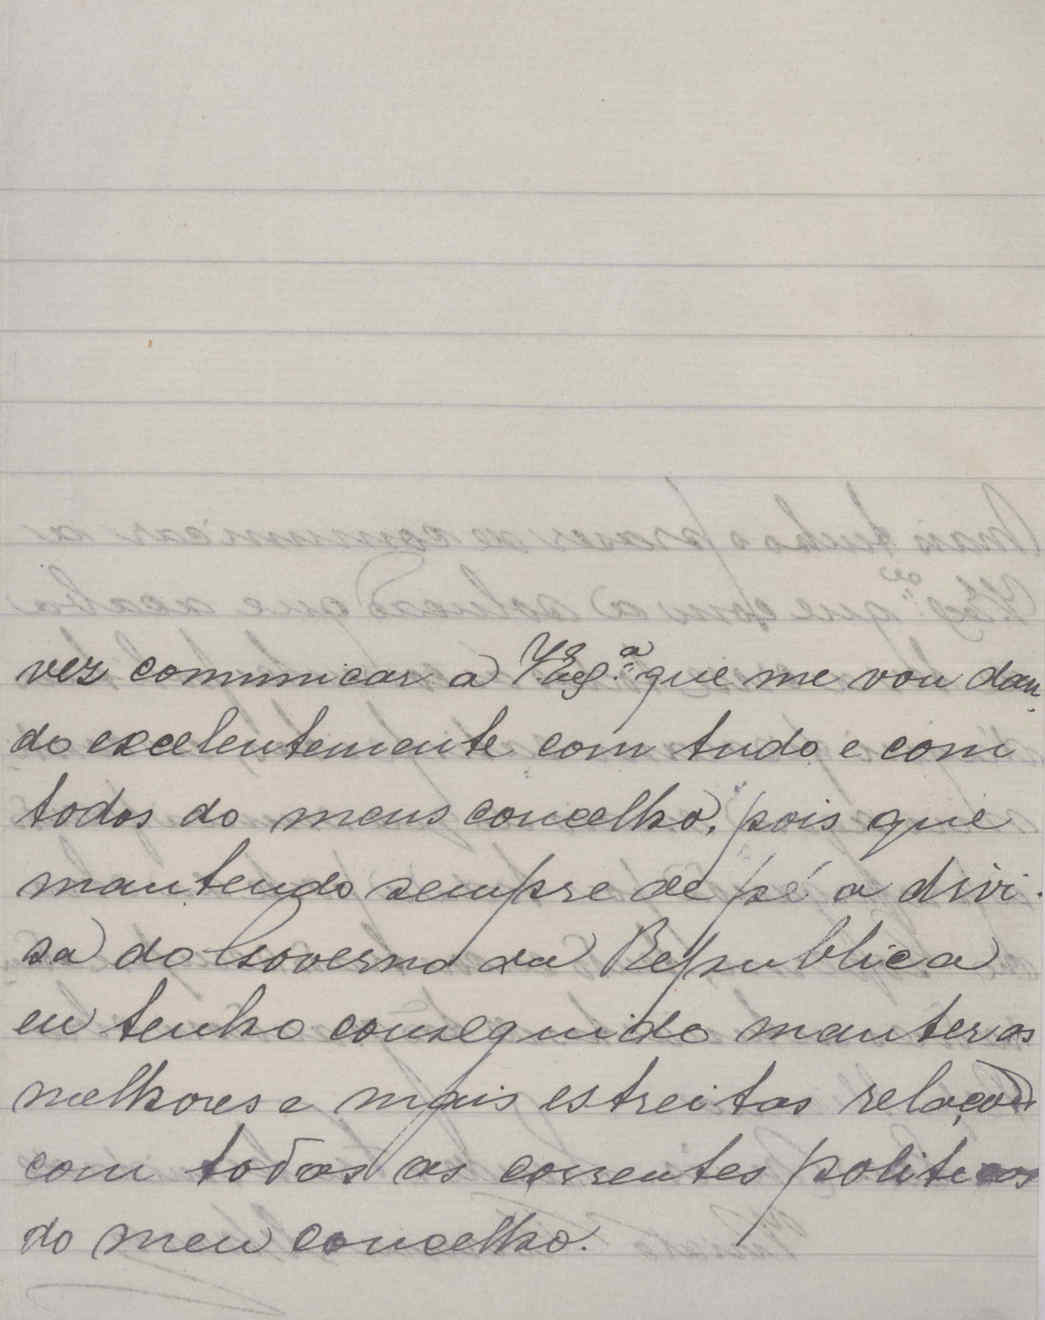 vez communicar a V. Exª. que me vou dan-
do excelentemente com tudo e com
todos do meus concelho, pois que
mantendo sempre de pé a divi-
sa do Governo da Republica
eu tenho conseguido manter as
melhores e mais estreitas relações
com todas as correntes politicas
do meu concelho.